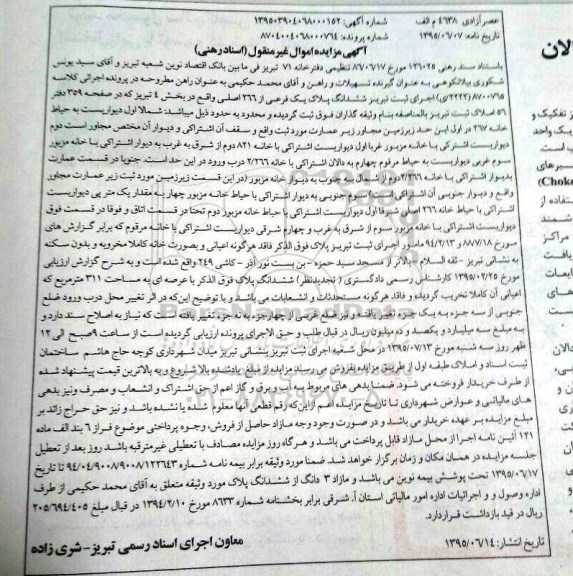 عصر آزادی ۴۶۳۸ م الف
شماره آگهی: ۱۳۹۵۰۳۹۰۴۰۶۸۰۰۰۱۵۲
تاریخ نامه: ۱۳۹۵/۰۶/۰۷
شماره پرونده: ۸۷۰۴۰۰۴۰۶۸۰۰۰۷۶۴
آگهی مزایده اموال غیر منقول (اسناد رهنی)
باستناد سند رهنی ۱۲۶۰۲۵ مورخ ۸۷۰۶۱۷ تنظیمی دفترخانه ۷۱ تبریز فی ما بین بانک اقتصاد نوین شعبه تبریز و آقای سید یونس
شکوری بیلانکوهی به عنوان گیرنده تسهیلات و راهن و آقای محمد حکیمی به عنوان راهن مطروحه در پرونده اجرائی کلاسه
۸۷۰۰۷۶۵(۲۲۲۲/ی) اجرای ثبت تبریز ششدانگ پلاک یک فرعی از ۲۶۶ اصلی واقع در بخش ۴ تبریز که در صفحه ۳۵۹ دفتر
۵۶ املاک ثبت تبریز بالمناصفه بنام وثیقه گذاران فوق ثبت گردیده و محدود به حدود ذیل میباشد: شمالا اول دیواریست به حیاط
خانه ۲۶۷ در اول این حد زیرزمین مجاور زیر عمارت مورد ثبت واقع و سقف آن اشتراکی و دیوار آن مختص مجاور است دوم
دیواریست اشترکی با خانه مزبور غربا اول دیواریست اشتراکی با خانه ۸۲۱ دوم از شرق به غرب به دیوار اشتراکی با خانه مزبور
سوم غربی دیواریست به حیاط مرقوم چهارم به دالان اشتراکی با خانه ۲/۲۶۶ درب ورود در این حد است. جنوبا در قسمت عمارت
بدیوار اشتراکی با خانه ۲/۲۶۶ دوم از شمال به جنوب به دیوار خانه مزبور (در این قسمت زیرزمین مورد ثبت زیر عمارت مجاور
واقع و دیوار جنوبی آن اشتراکی است) سوم جنوبی به دیوار اشتراکی با حیاط خانه مزبور چهارم به مقدار یک متر پی دیواریست
اشتراکی با حیاط خانه ۲۶۶ اصلی شرقا اول دیواریست اشتراکی با حیاط خانه مزبور دوم تحتا در قسمت اتاق و فوقا در قسمت فوق
دیواریست اشتراکی با خانه مزبور سوم از شرق به غرب و چهارم شرقی دیواریست اشتراکی با خانه مرقوم که برابر گزارش های
مورخ ۸۷/۷/۱۸ و ۹۴/۲/۱۳ مامور اجرای ثبت تبریز پلاک فوق الذکر فاقد هرگونه اعیانی و بصورت خانه کاملا مخروبه و بدون سکنه
به نشانی تبریز - ثقه السلام - بالاتر از مسجد سید حمزه - بن بست نور آذر - کاشی ۲۴۹ واقع شده است و به شرح گزارش ارزیابی
مورخ ۱۳۹۵/۰۲/۲۵ کارشناس رسمی دادگستری (تجدیدنظر) ششدانگ پلاک فوق الذکر با عرصه ای به مساحت ۳۱۱ مترمربع که
اعیانی آن کاملا تخریب گردیده و فاقد هرگونه مستحدثات و انشعابات می باشد و با توضیح این که در اثر تغییر محل درب ورود ضلع
جنوبی از سه جزء به یک جزء تغییر یافته و نیز ضلع غربی از چهار جزء به نه جزء تغییر یافته است که نیاز به اصلاح سند دارد و
به مبلغ سه میلیارد و یکصد و ده میلیون ریال در قبال طلب و حق الاجرای پرونده ارزیابی گردیده است از ساعت ۹صبح الی ۱۲
ظهر روز سه شنبه مورخ ۱۳۹۵/۰۷/۱۳ در محل شعبه اجرای ثبت تبریز بنشانی تبریز میدان شهرداری کوچه حاج هاشم ساختمان
ثبت اسناد و املاک طبقه اول از طریق مزایده بفروش می رسد مزایده از مبلغ یادشده بالا شروع و به بالاترین قیمت پیشنهاد شده
از طرف خریدار فروخته می شود. ضمنا بدهی های مربوط به آب و برق و گاز اعم از حق اشتراک و انشعاب و مصرف ونیز بدهی
های مالیاتی و عوارض شهرداری تا تاریخ مزایده اعم از این که رقم قطعی آنها معلوم شده یا نشده باشد و نیز حق حراج زائد بر
مبلغ مزایده بر عهده خریدار می باشد و در صورت وجود وجه مازاد حاصل از فروش، وجوه پرداختی موضوع فراز ۶ بند الف ماده
۱۲۱ آئین نامه اجرا از محل مازاد قابل پرداخت می باشد و هرگاه روز مزایده مصادف با تعطیلی غیرمترقبه باشد روز بعد از تعطیل
جلسه مزایده در همان مکان و زمان برگزار خواهد شد. ضمنا مورد وثیقه برابر بیمه نامه شماره ۹۴/۰۴/۹۰۰۸/۹۰۰۸/۱۲۲۶۴۳ تا تاریخ
۱۳۹۵/۰۶/۱۷ تحت پوشش بیمه نوین می باشد و مازاد ۳ دانگ از ششدانگ پلاک مورد وثیقه متعلق به آقای محمد حکیمی از طرف
اداره وصول و و اجرائیات اداره امور مالیاتی استان آ.شرقی برابر بخشنامه شماره ۸۶۳۳ مورخ ۱۳۹۴/۲/۱۰ در قبال مبلغ ۲۰۵/۶۹۴/۴۰۵
ریال در قید بازداشت قراردارد.
تاریخ انتشار: ۱۳۹۵/۰۶/۱۴
معاون اجرای اسناد رسمی تبریز - شری زاده